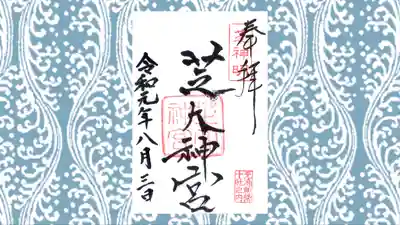 奉拝
芝大神宮
令和元年八月三日